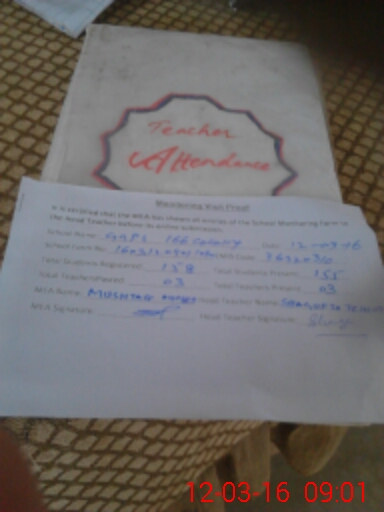 Teacher
Attendance
Monitoring Visit Proof
It is certified that the MEA has shown all entries of the School Monitoring Form to
the Head Teacher before its online submission.
School Name: GGPS 166 Colony Date: 12-03-16
School Form No: EMIS Code:
Total Students Registered: 158 Total Students Present: 155
Total Teachers Posted: 03 Total Teachers Present: 03
MEA Name: MUSHTAQ AHMED Head Teacher Name:
MEA Signature: Head Teacher Signature:
12-03-16 09:01